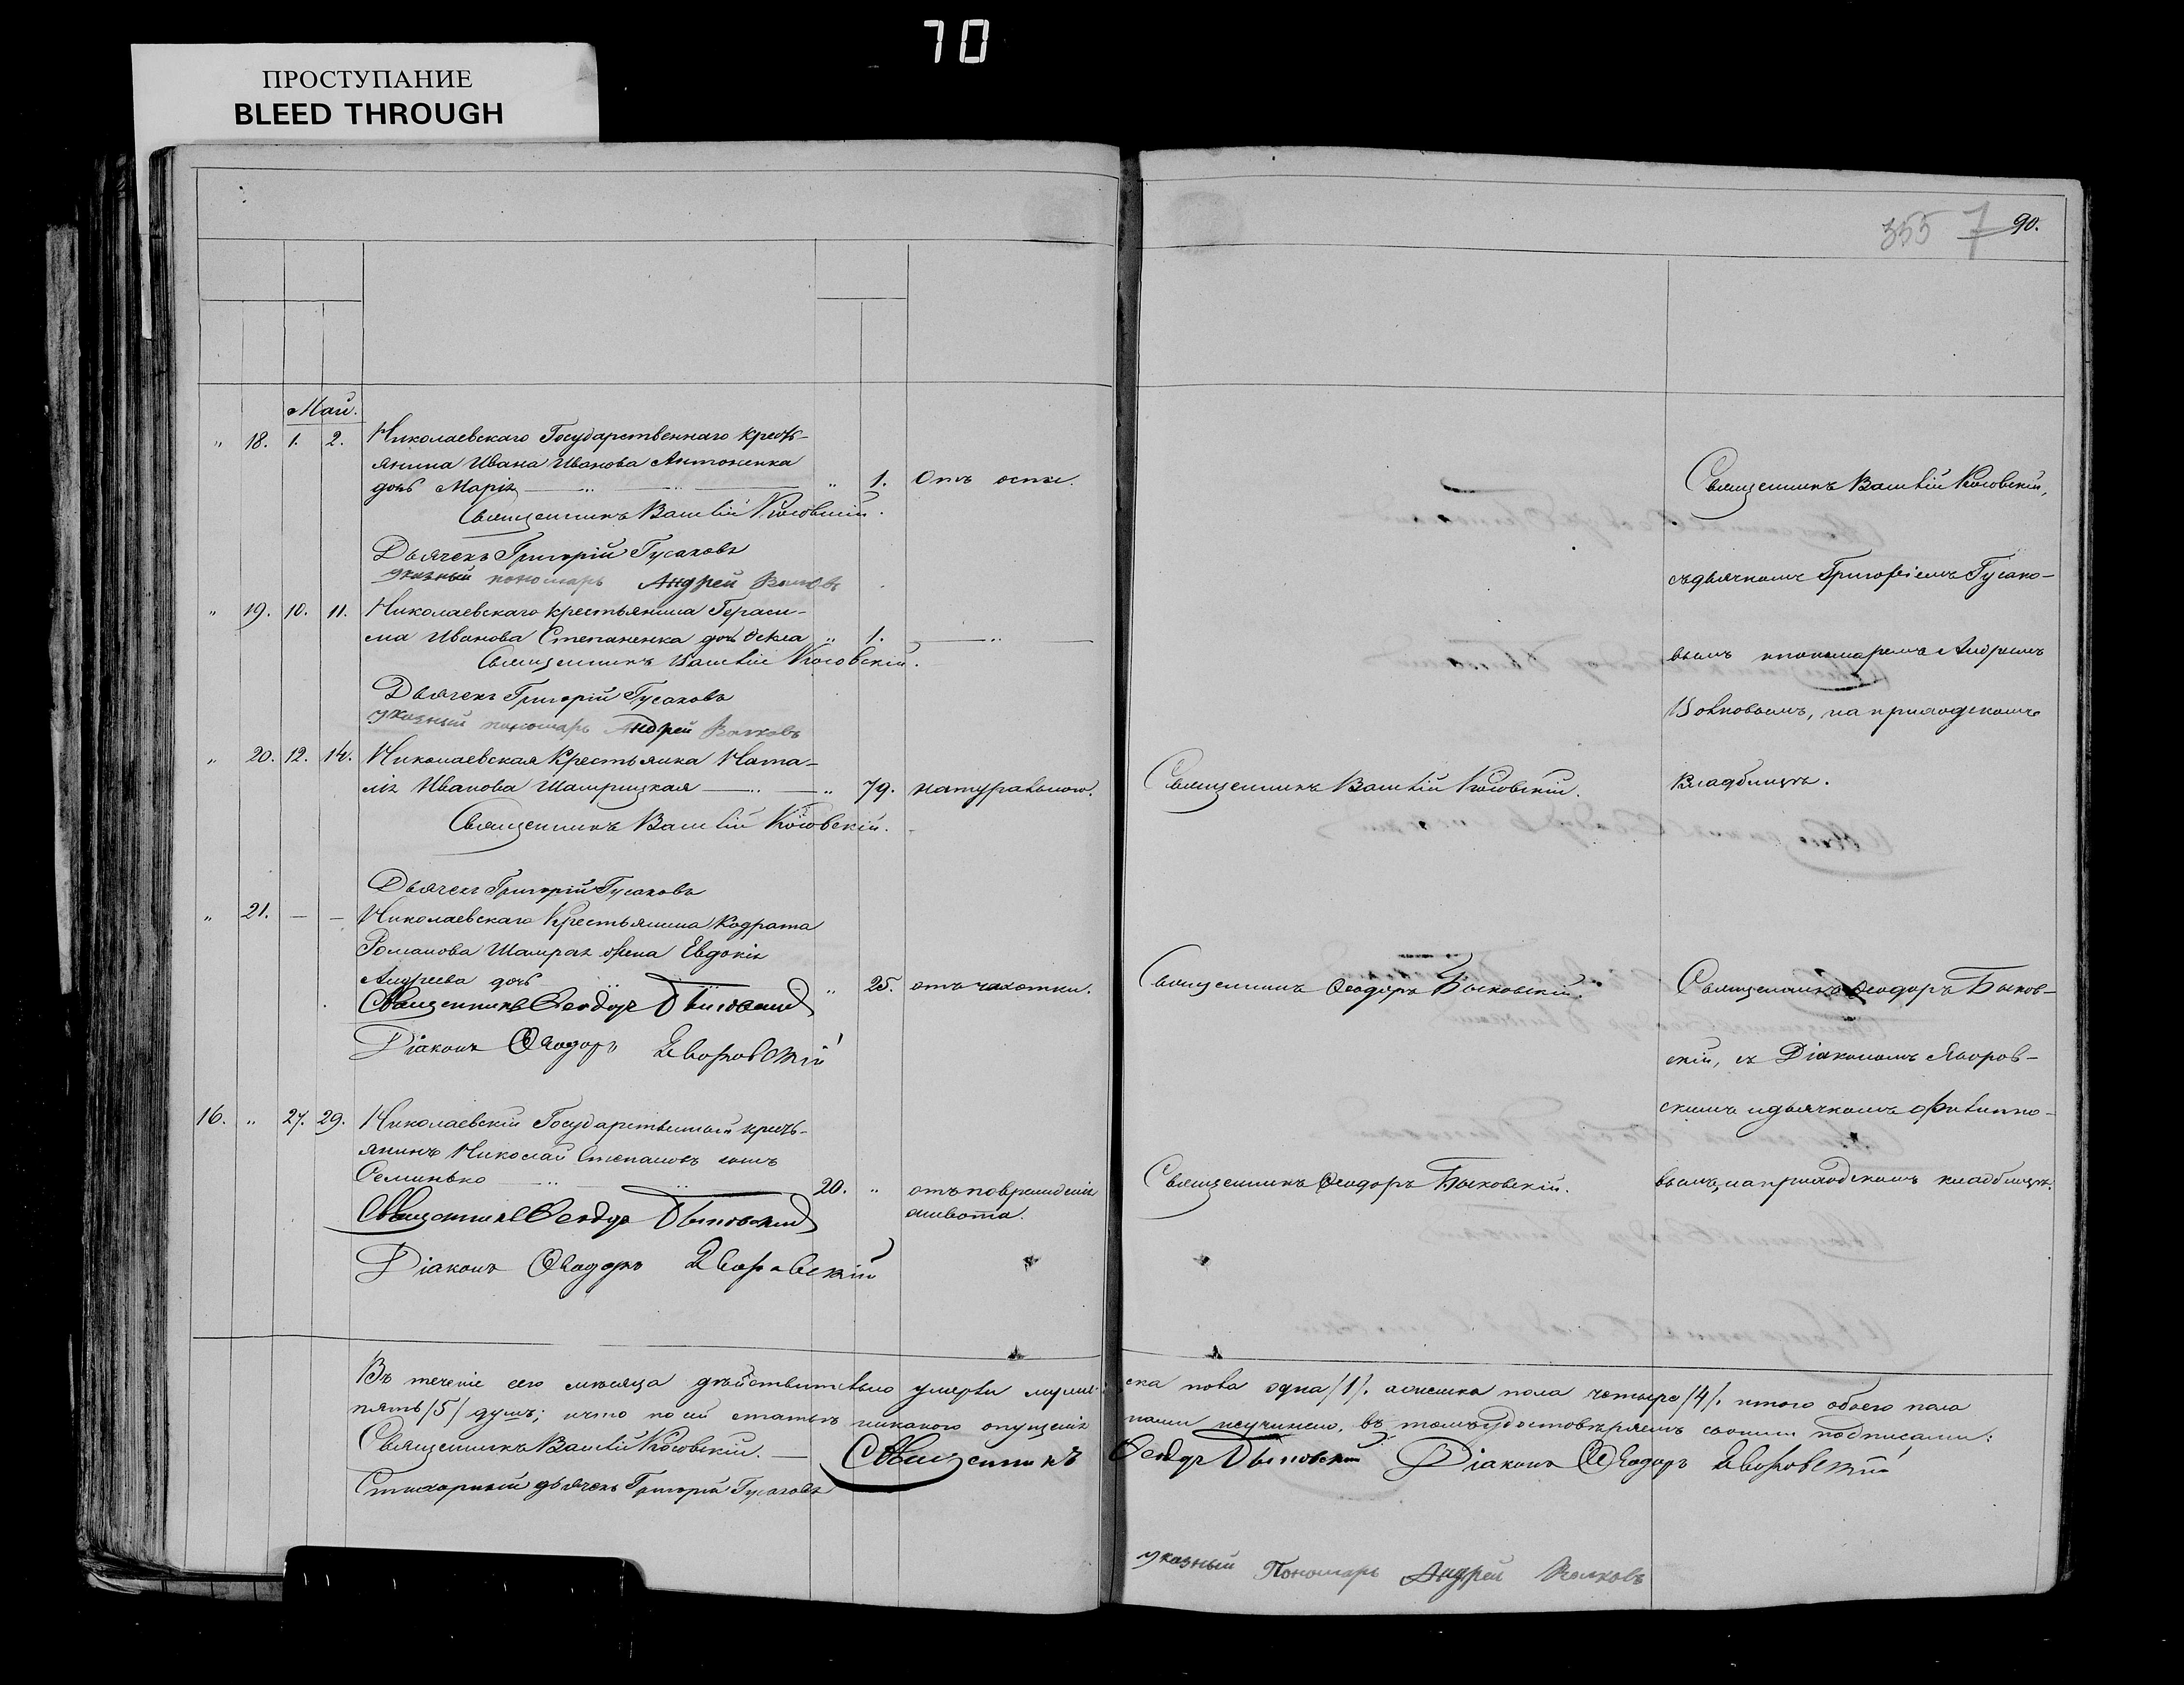 70
ПРОСТУПАНИЕ
BLEED THROUGH
355 7 90.
Май.
" 18. 1. 2. Николаевскаго Государственнаго кресть-
янина Ивана Иванова Антоненка
дочь Марія " 1. Отъ оспы.
Священникъ Василій Косовскій.
Дьячекъ Григорій Гусаковъ
указный пономарь Андрей Волковъ
" 19. 10. 11. Николаевскаго крестьянина Гераси-
ма Иванова Степаненка дочь Ѳекла " 1. "
Священникъ Василій Косовскій.
Дьячекъ Григорій Гусаковъ
указный пономарь Андрей Волковъ
" 20. 12. 14. Николаевская Крестьянка Ната-
лія Иванова Шамрицкая " 79. натуральною.
Священникъ Василій Косовскій.
Дьячекъ Григорій Гусаковъ
" 21. — — Николаевскаго Крестьянина Кодрата
Романова Шамрая жена Евдокія
Андреева дочь " 25. отъ чахотки.
Священникъ Ѳеодоръ Быковскій
Діаконъ Ѳеодоръ Яворовскій
16. " 27. 29. Николаевскій Государственный кресть-
янинъ Николай Степановъ сынъ
20. " отъ поврежденія
Священникъ Ѳеодоръ Быковскій
живота.
Діаконъ Ѳеодоръ Яворовскій
Священникъ Василій Косовскій,
съ дьячкомъ Григоріемъ Гусако-
вымъ и пономаремъ Андреемъ
Волковымъ, на приходскомъ
Священникъ Василій Косовскій. кладбищѣ.
Священникъ Ѳеодоръ Быковскій. Священникъ Ѳеодоръ Быков-
скій, съ Діакономъ Яворов-
скимъ и дьячкомъ Филиппо-
Священникъ Ѳеодоръ Быковскій. вымъ, на приходскомъ кладбищѣ.
Въ теченіе сего мѣсяца дѣйствительно умерли мужес-
ска пола одна /1/. а женска пола четыре /4/. итого обоего пола
пять /5/ душъ; и что по сей статьѣ никакого опущенія
нами неучинено, въ томъ удостовѣряемъ своими подписами:
Священникъ Василій Косовскій. — Священникъ Ѳеодоръ Быковскій Діаконъ Ѳеодоръ Яворовскій
Стихарный дьячекъ Григорій Гусаковъ
указный Пономарь Андрей Волковъ